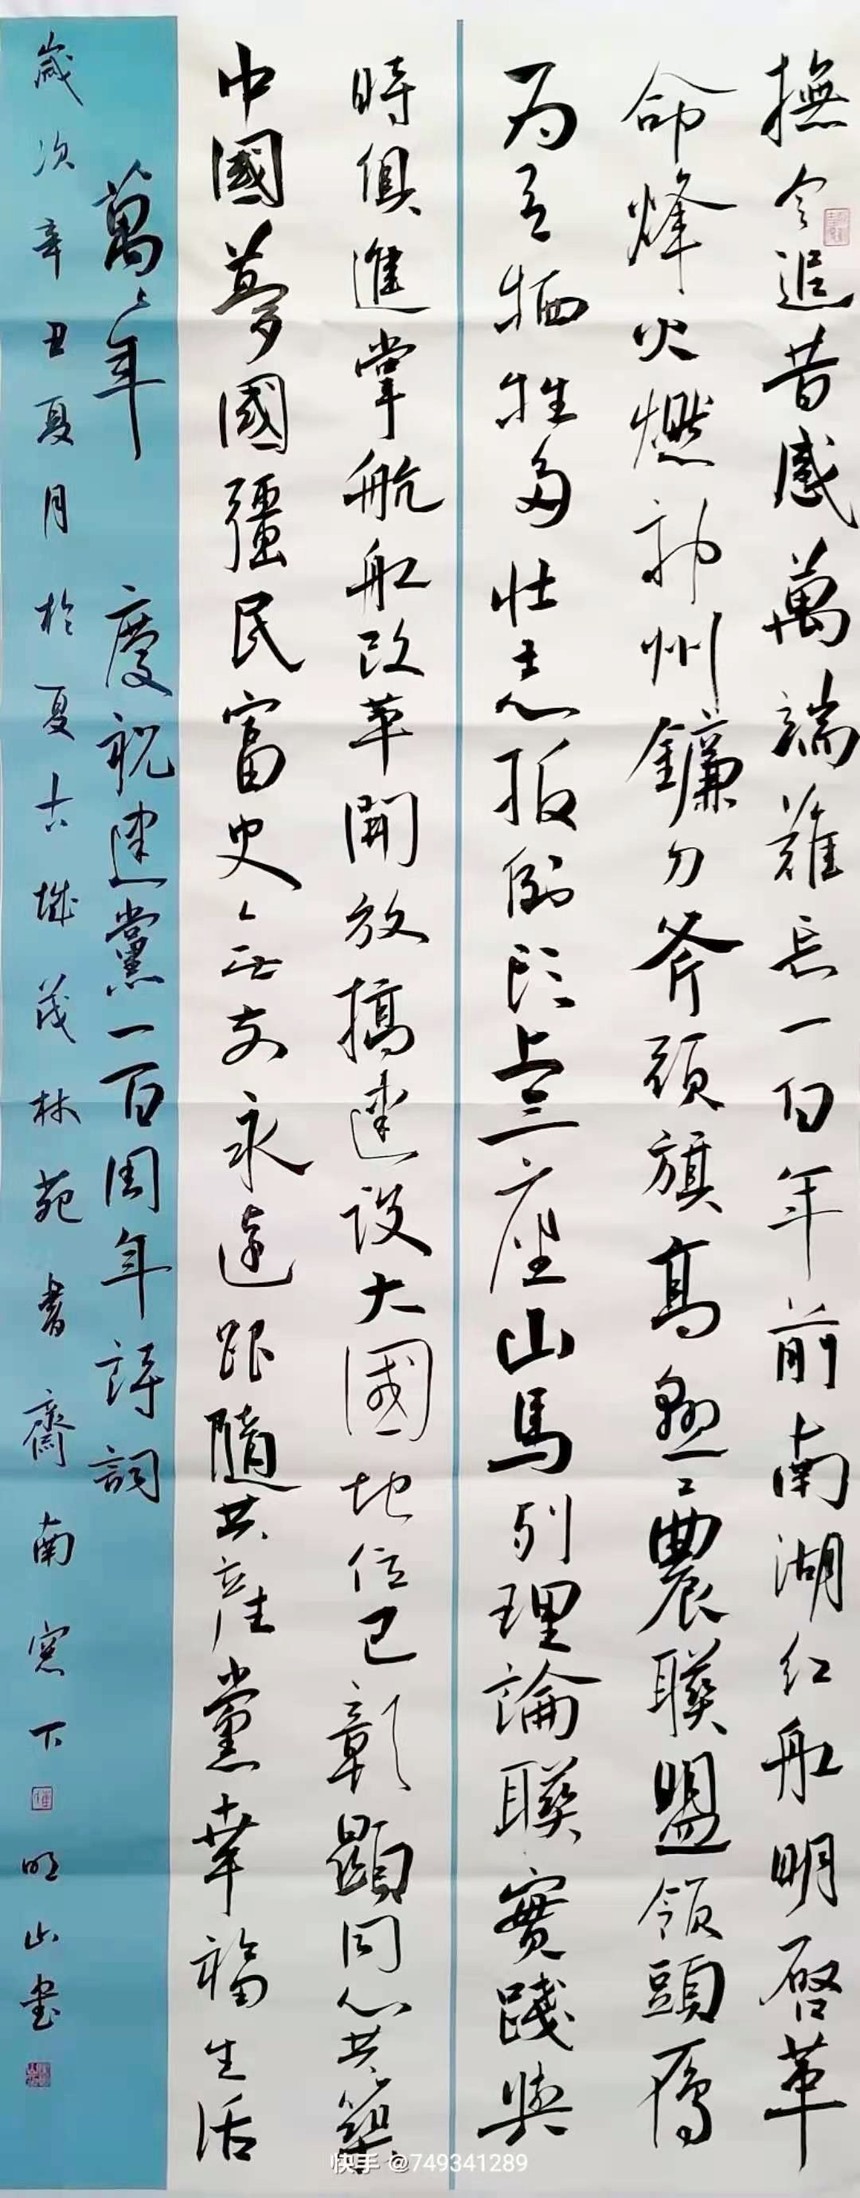 撫今追昔感萬端難忘一百年前南湖红船明啓革
命烽火燃神州鐮刀斧頭旗高舉工農聯盟領頭雁
为有牺牲多壮志扳倒头上三座山馬列理論联實踐與
時俱進掌航船改革開放搞建設大國地位已彰顯同心共築
中國夢國強民富史无前永遠跟隨共产黨幸福生活
萬萬年 慶祝建黨一百周年詩詞
歲次辛丑夏月於夏古城茂林苑書齋南窓下 明山書
快手 @749341289